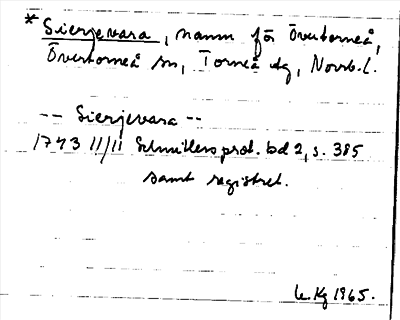 * Sierjevara, namn för Övertorneå,
Övertorneå sn, Torneå tg, Norrb. l.
-- Sierjevara --
1743 11/11 Schnitlers prot. bd 2, s. 385
samt registret.
1965.